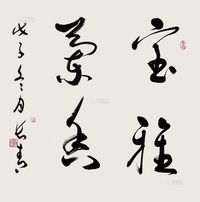 室雅
蘭香
戊子冬月